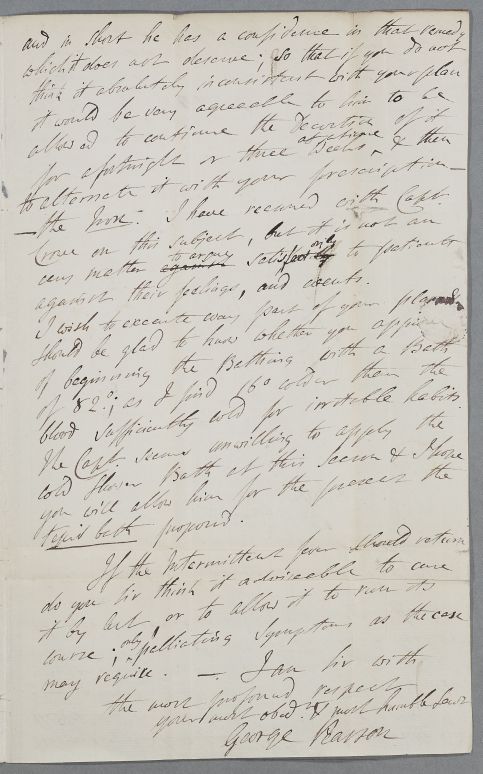 and in short he has a confidence in that remedy
which it does not deserve: so that if you do not
think it absolutely inconsistent with your plan
it would be very agreeable to him to be
allowed to continue the Decoction of it
for a fortnight or three Weeks at a time, & then
to alternate it with your prescription —
— the Iron. I have reasoned with Capt.
on this subject, but it is not an
easy matter to argue satisfactorily to patients
against their feelings, and events.
I wish to execute every part of your plan &
should be glad to know whether you approve
of beginning the Bathing with a Bath
of 82°; as I find 16° colder than the
blood sufficiently cold for irritable habits.
The Capt. seems unwilling to apply the
cold Shower Bath at this Season & I hope
you will allow him for the present the
tepid bath proposed.
If the Intermittent fever should return
do you Sir think it adviseable to cure
it by art, or to allow it to run its
course; only palliating Symptoms as the case
may require. — I am Sir with
the most profound respect
your most obed.t & most humble Serv.t
George Pearson